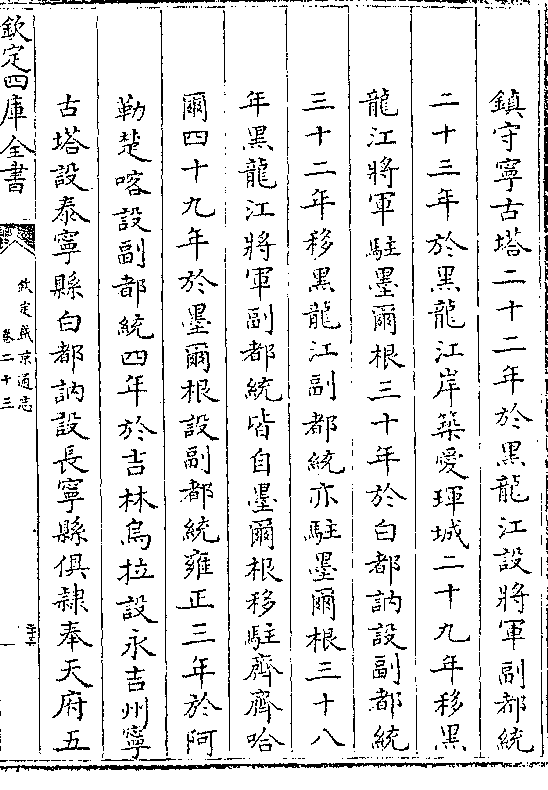 鎮守寧古塔二十二年於黑龍江設將軍副都統
二十三年於黑龍江岸築愛琿城二十九年移黑
龍江將軍駐墨爾根三十年於白都訥設副都統
三十二年移黑龍江副都統亦駐墨爾根三十八
年黑龍江將軍副都統皆自墨爾根移駐齊齊哈
爾四十九年於墨爾根設副都統雍正三年於阿
勒楚喀設副都統四年於吉林烏拉設永吉州寧
古塔設泰寧縣白都訥設長寧縣俱隸奉天府五
欽定四庫全書
欽定盛京通志
卷二十三